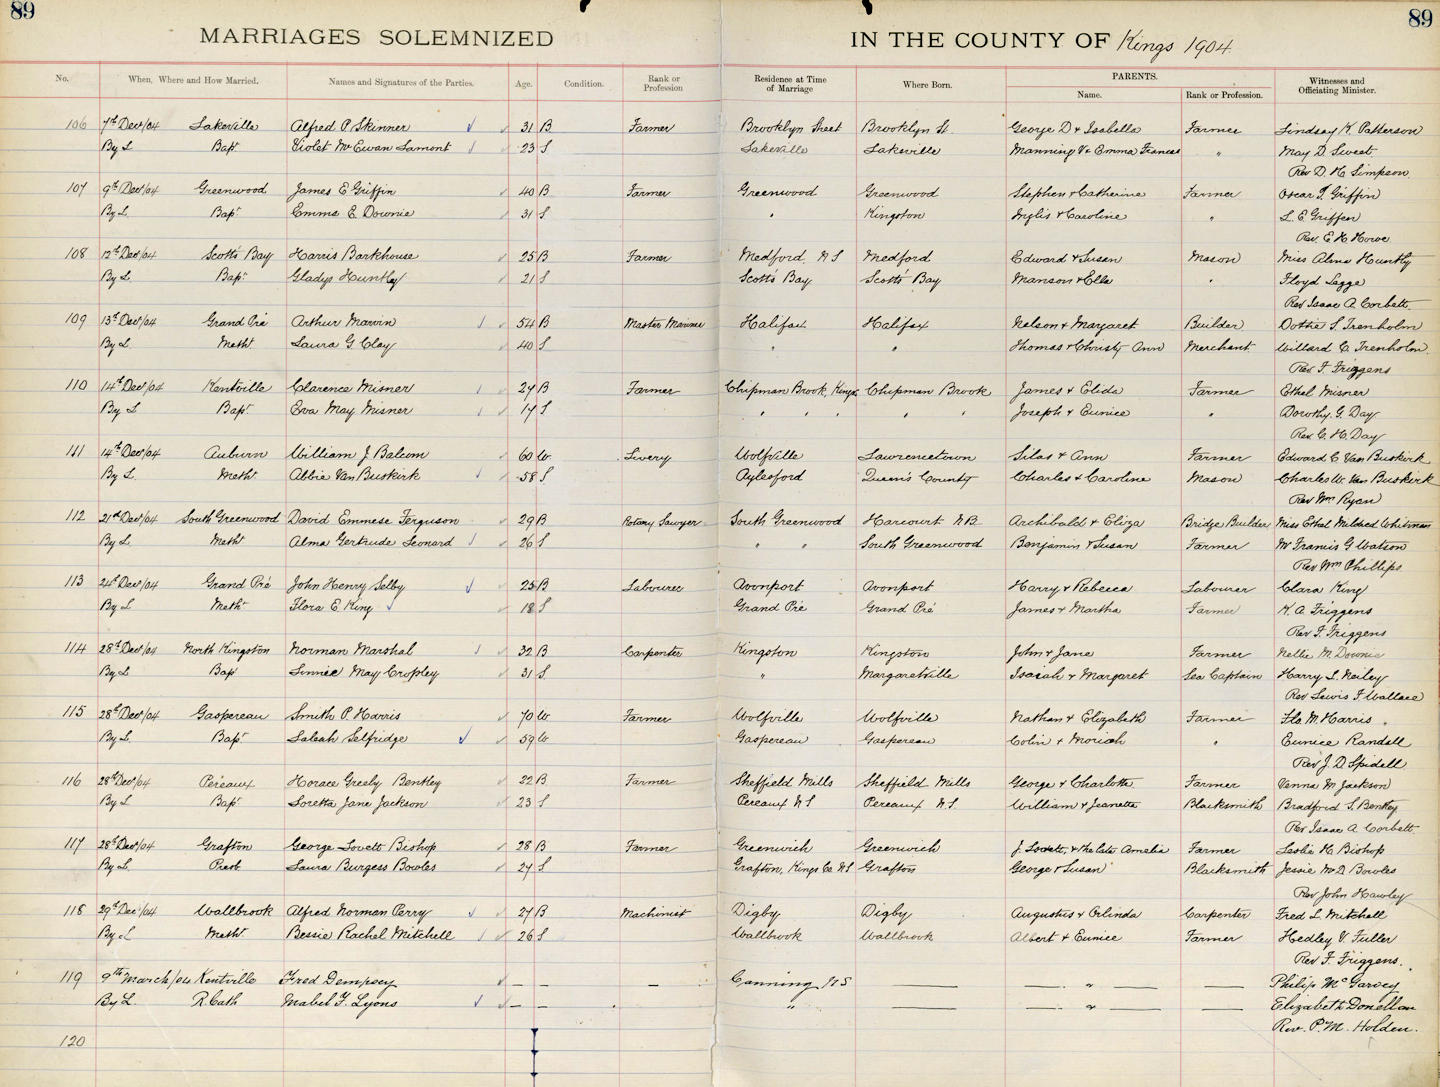 89 89
MARRIAGES SOLEMNIZED IN THE COUNTY OF Kings 1904
No. When, Where and How Married. Names and Signatures of the Parties. Age. Condition. Rank or Profession Residence at Time of Marriage Where Born. PARENTS. Name. Rank or Profession. Witnesses and Officiating Minister.
106 7th Dec/04 Lakeville Alfred P. Skinner 31 B Farmer Brooklyn Street Brooklyn St. George D & Isabella Farmer Lindsay K. Patterson
By L Bapt Violet McEwan Lamont 23 S Lakeville Lakeville Manning V & Emma Frances " May D. Sweet
Rev D. H. Simpson
107 9th Dec/04 Greenwood James E Griffin 40 B Farmer Greenwood Greenwood Stephen & Catherine Farmer Oscar J. Griffin
By L. Bapt Emma E. Downie 31 S " Kingston Inglis & Caroline " L. E. Griffen
Rev. E. H. Howe
108 12th Dec/04 Scott's Bay Harris Barkhouse 25 B Farmer Medford, N S Medford Edward & Susan Mason Miss Alma Huntly
By L. Bapt Gladys Huntley 21 S Scott's Bay Scott's Bay Manson & Ella " Floyd Legge
Rev Isaac A Corbett
109 13th Dec/04 Grand Pré Arthur Marvin 54 B Master Mariner Halifax Halifax Nelson & Margaret Builder Dottie S. Trenholm
By L. Meth Laura G Clay 40 S " " Thomas & Christy Ann Merchant Willard C. Trenholm
Rev. F. Friggens
110 14th Dec/04 Kentville Clarence Misner 27 B Farmer Chipman Brook, Kings Chipman Brook James & Elida Farmer Ethel Misner
By L Bapt Eva May Misner 17 S " " " " " Joseph & Eunice " Dorothy G. Day
Rev. G. H. Day
111 14th Dec/04 Auburn William J. Balcom 60 W. Livery Wolfville Lawrencetown Silas & Ann Farmer Edward C Van Buskirk
By L. Meth Abbie Van Buskirk 58 S Aylesford Queen's County Charles & Caroline Mason Charles W. Van Buskirk
Rev Wm Ryan
112 21st Dec/04 South Greenwood David Emmese Ferguson 29 B Rotary Sawyer South Greenwood Harcourt N.B. Archibald & Eliza Bridge Builder Miss Ethel Mildred Whitman
By L. Meth Alma Gertrude Leonard 26 S " " South Greenwood Benjamin & Susan Farmer Mr Francis G Watson
Rev Wm Phillips
113 24th Dec/04 Grand Pré John Henry Selby 25 B Labourer Avonport Avonport Harry & Rebecca Labourer Clara King
By L Meth Flora E. King 18 S Grand Pré Grand Pré James & Martha Farmer K. A. Friggens
Rev F. Friggens
114 28th Dec/04 North Kingston Norman Marshal 32 B Carpenter Kingston Kingston John & Jane Farmer Nellie M Downie
By L Bapt Linnie May Cropley 31 S " Margaretville Isaiah & Margaret Sea Captain Harry L. Neiley
Rev Lewis F. Wallace
115 28th Dec/04 Gaspereau Smith P. Harris 70 W. Farmer Wolfville Wolfville Nathan & Elizabeth Farmer Flo M. Harris
By L. Bapt Saleah Selfridge 59 W. Gaspereau Gaspereau Colin & Moriah " Eunice Randall
Rev J. D. Spidell
116 28th Dec/04 Pereaux Horace Greely Bentley 22 B Farmer Sheffield Mills Sheffield Mills George & Charlotte Farmer Venna M Jackson
By L Bapt Loretta Jane Jackson 23 S Pereaux N S Pereaux N.S. William & Jeanette Blacksmith Bradford S. Bentley
Rev Isaac A Corbett
117 28th Dec/04 Grafton George Lovett Bishop 28 B Farmer Greenwich Greenwich J. Lovette, & the late Amelia Farmer Leslie H. Bishop
By L. Presb. Laura Burgess Bowles 27 S Grafton, Kings Co N S Grafton George & Susan Blacksmith Jessie McD Bowles
Rev John Hawley
118 29th Dec/04 Wallbrook Alfred Norman Perry 27 B Machinist Digby Digby Augustus & Orlinda Carpenter Fred L. Mitchell
By L Meth. Bessie Rachel Mitchell 26 S Wallbrook Wallbrook Albert & Eunice Farmer Hedley V. Fuller
Rev F. Friggens.
119 9th March/04 Kentville Fred Dempsey — — — Canning N S — — " — — Philip McGarvey
By L. R. Cath Mabel F. Lyons — — " — — " — — Elizabeth Donellan
Rev. P. M. Holden.
120